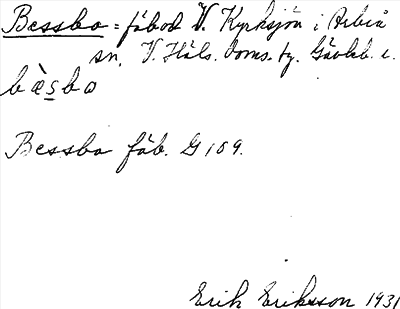 Bessbo = fäbod V. Kyrksjön i Arbrå
sn, V. Häls. doms. ty. Gävleb. l.
bὲsbo
Bessbo fäb. G 109.
Erik Eriksson 1931